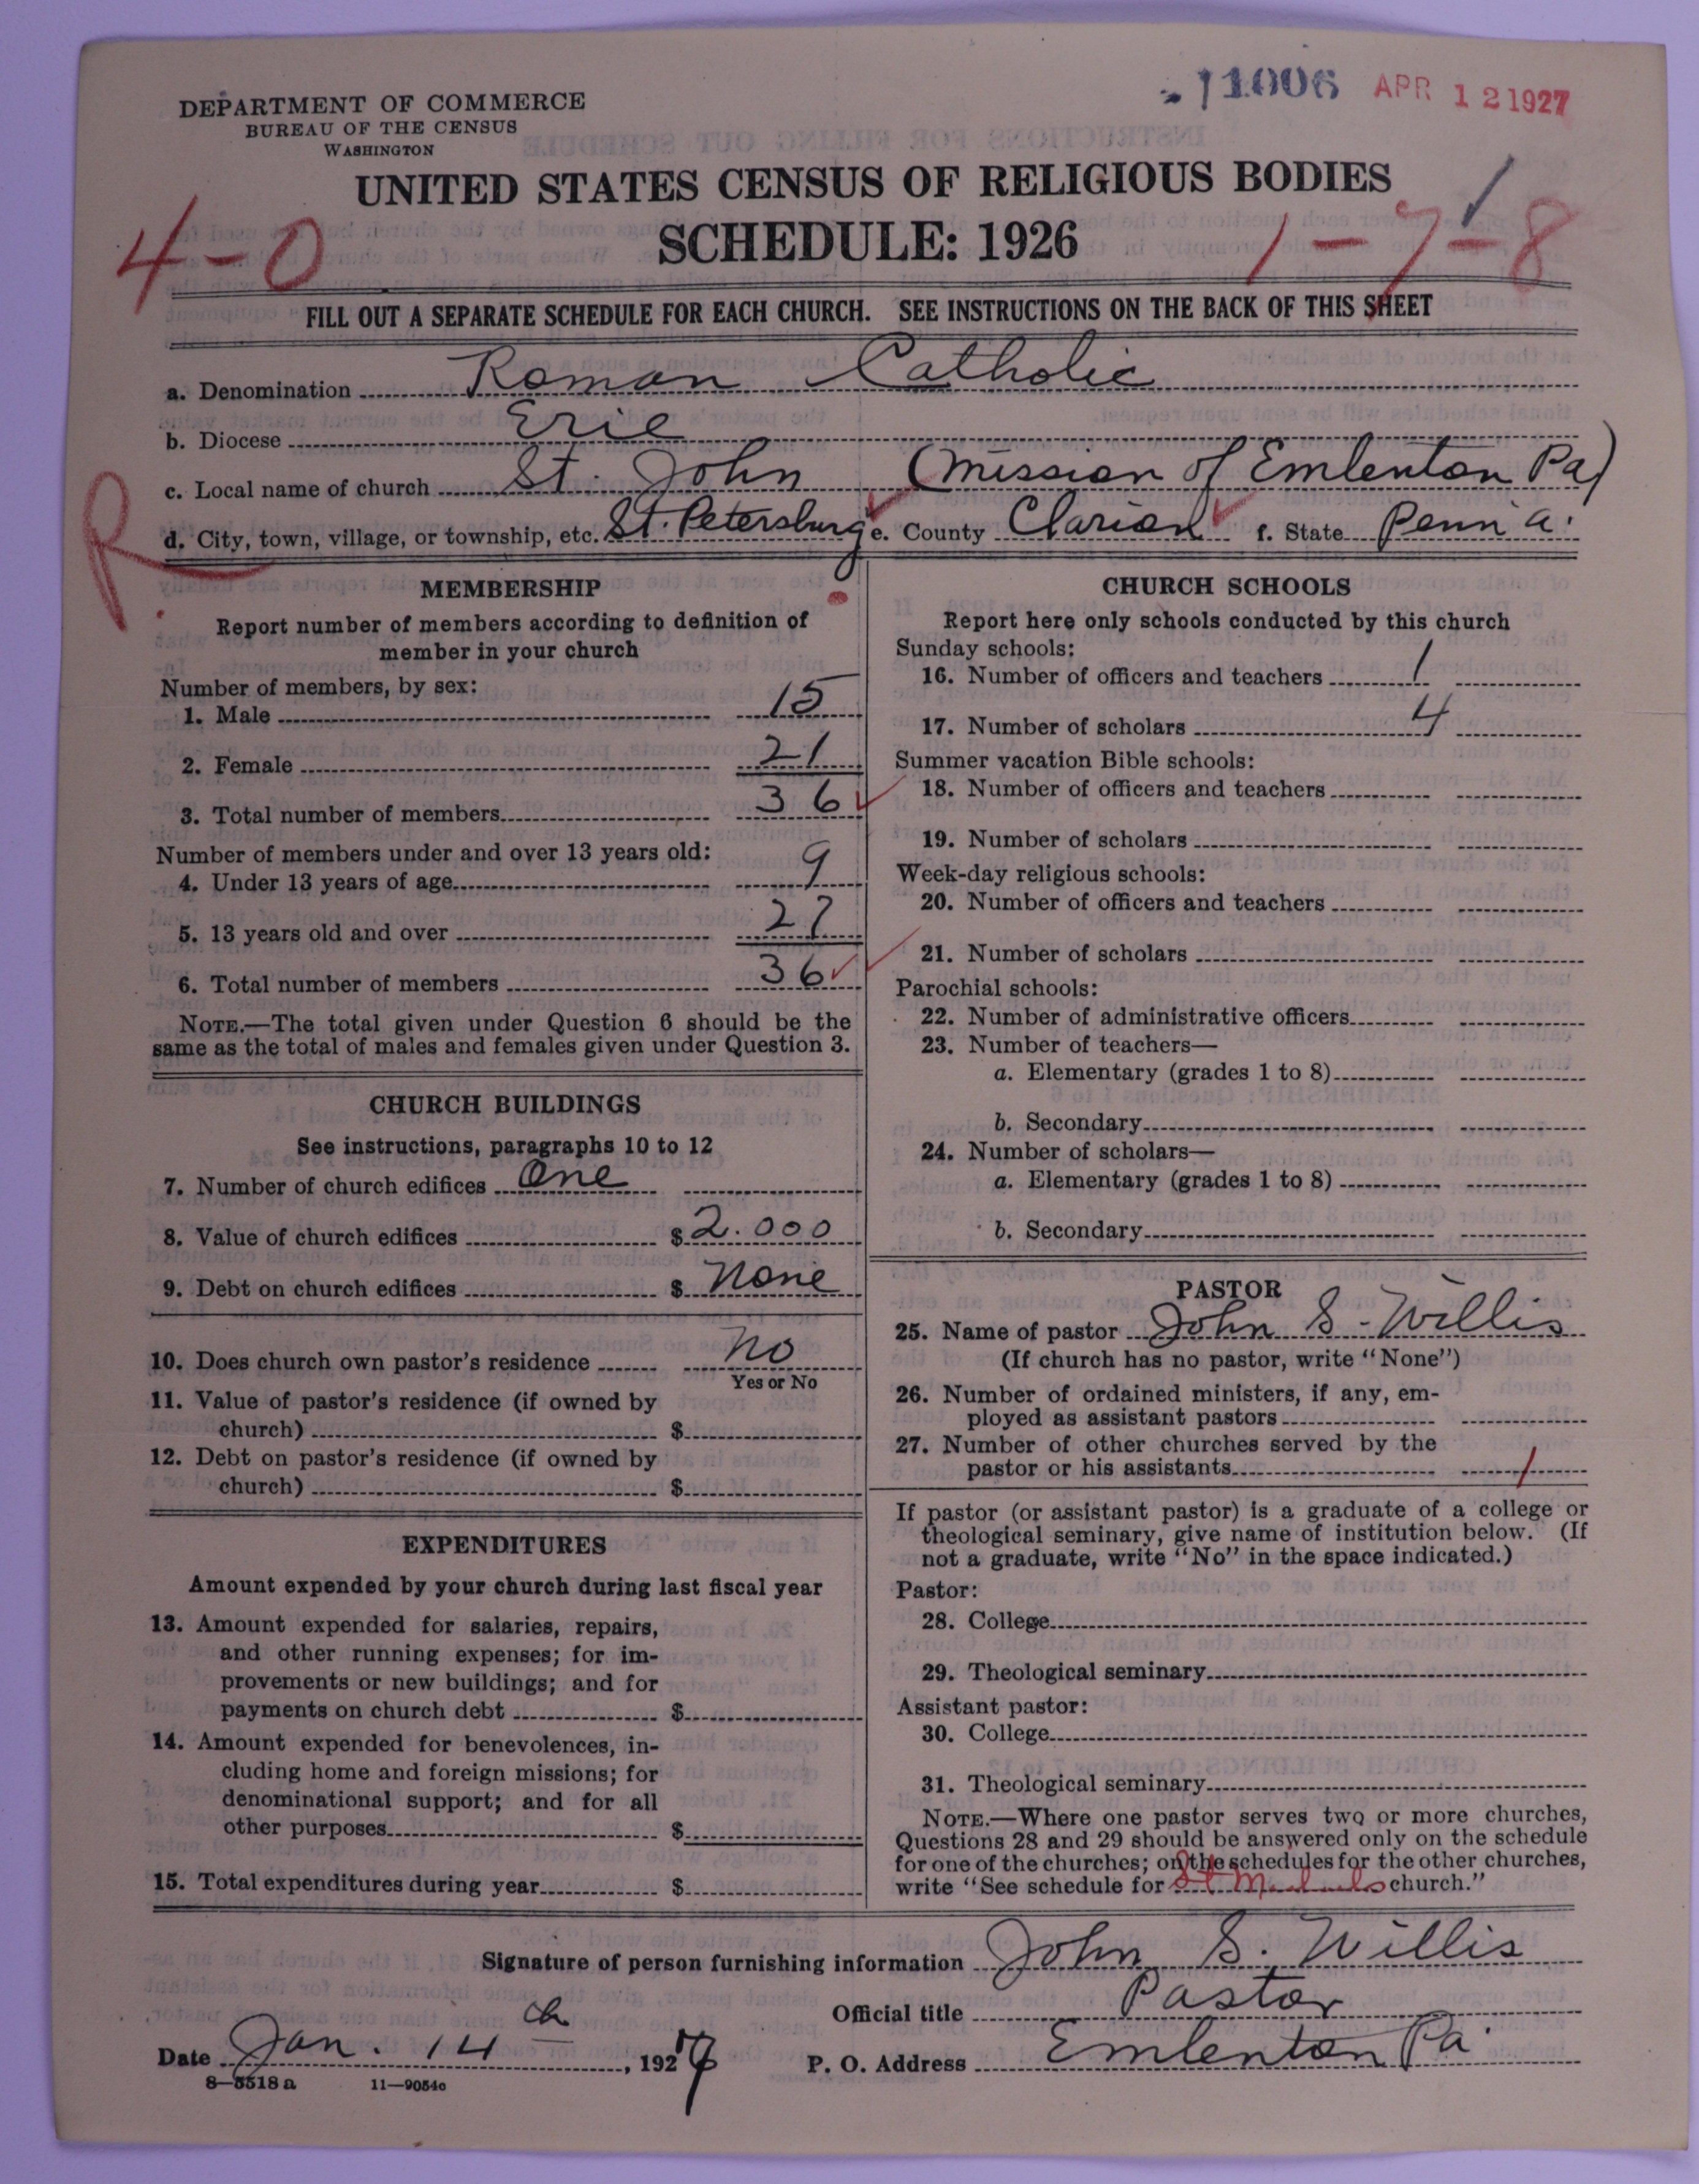 11006 APR 12 1927
DEPARTMENT OF COMMERCE
BUREAU OF THE CENSUS
WASHINGTON
UNITED STATES CENSUS OF RELIGIOUS BODIES
SCHEDULE: 1926
4-0
1-7-8
FILL OUT A SEPARATE SCHEDULE FOR EACH CHURCH. SEE INSTRUCTIONS ON THE BACK OF THIS SHEET
a. Denomination Roman Catholic
b. Diocese Erie
c. Local name of church St. John (Mission of Emlenton Pa)
d. City, town, village, or township, etc. St. Petersburg e. County Clarion f. State Penn'a.
R.
MEMBERSHIP
Report number of members according to definition of
member in your church
Number of members, by sex:
1. Male 15
2. Female 21
3. Total number of members 36
Number of members under and over 13 years old:
4. Under 13 years of age 9
5. 13 years old and over 27
6. Total number of members 36
NOTE.—The total given under Question 6 should be the
same as the total of males and females given under Question 3.
CHURCH BUILDINGS
See instructions, paragraphs 10 to 12
7. Number of church edifices One
8. Value of church edifices $ 2.000
9. Debt on church edifices $ None
10. Does church own pastor's residence No
Yes or No
11. Value of pastor's residence (if owned by
church) $
12. Debt on pastor's residence (if owned by
church) $
EXPENDITURES
Amount expended by your church during last fiscal year
13. Amount expended for salaries, repairs,
and other running expenses; for im-
provements or new buildings; and for
payments on church debt $
14. Amount expended for benevolences, in-
cluding home and foreign missions; for
denominational support; and for all
other purposes $
15. Total expenditures during year $
CHURCH SCHOOLS
Report here only schools conducted by this church
Sunday schools:
16. Number of officers and teachers 1
17. Number of scholars 4
Summer vacation Bible schools:
18. Number of officers and teachers
19. Number of scholars
Week-day religious schools:
20. Number of officers and teachers
21. Number of scholars
Parochial schools:
22. Number of administrative officers
23. Number of teachers—
a. Elementary (grades 1 to 8)
b. Secondary
24. Number of scholars—
a. Elementary (grades 1 to 8)
b. Secondary
PASTOR
25. Name of pastor John S. Willis
(If church has no pastor, write "None")
26. Number of ordained ministers, if any, em-
ployed as assistant pastors
27. Number of other churches served by the
pastor or his assistants 1
If pastor (or assistant pastor) is a graduate of a college or
theological seminary, give name of institution below. (If
not a graduate, write "No" in the space indicated.)
Pastor:
28. College
29. Theological seminary
Assistant pastor:
30. College
31. Theological seminary
NOTE.—Where one pastor serves two or more churches,
Questions 28 and 29 should be answered only on the schedule
for one of the churches; on the schedules for the other churches,
write "See schedule for St Michaels church."
Signature of person furnishing information John S. Willis
Official title Pastor
Date Jan. 14 th, 1927 P. O. Address Emlenton Pa
8—5518 a 11—9054c